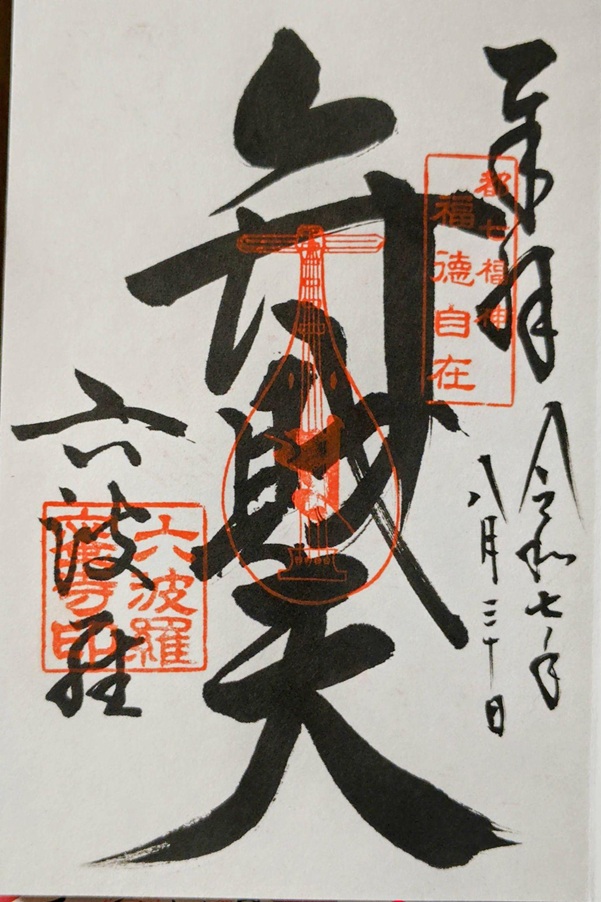 奉拝
令和七年
八月三十日
都七福神
福徳自在
弁財天
六波羅
六波羅
蜜寺印